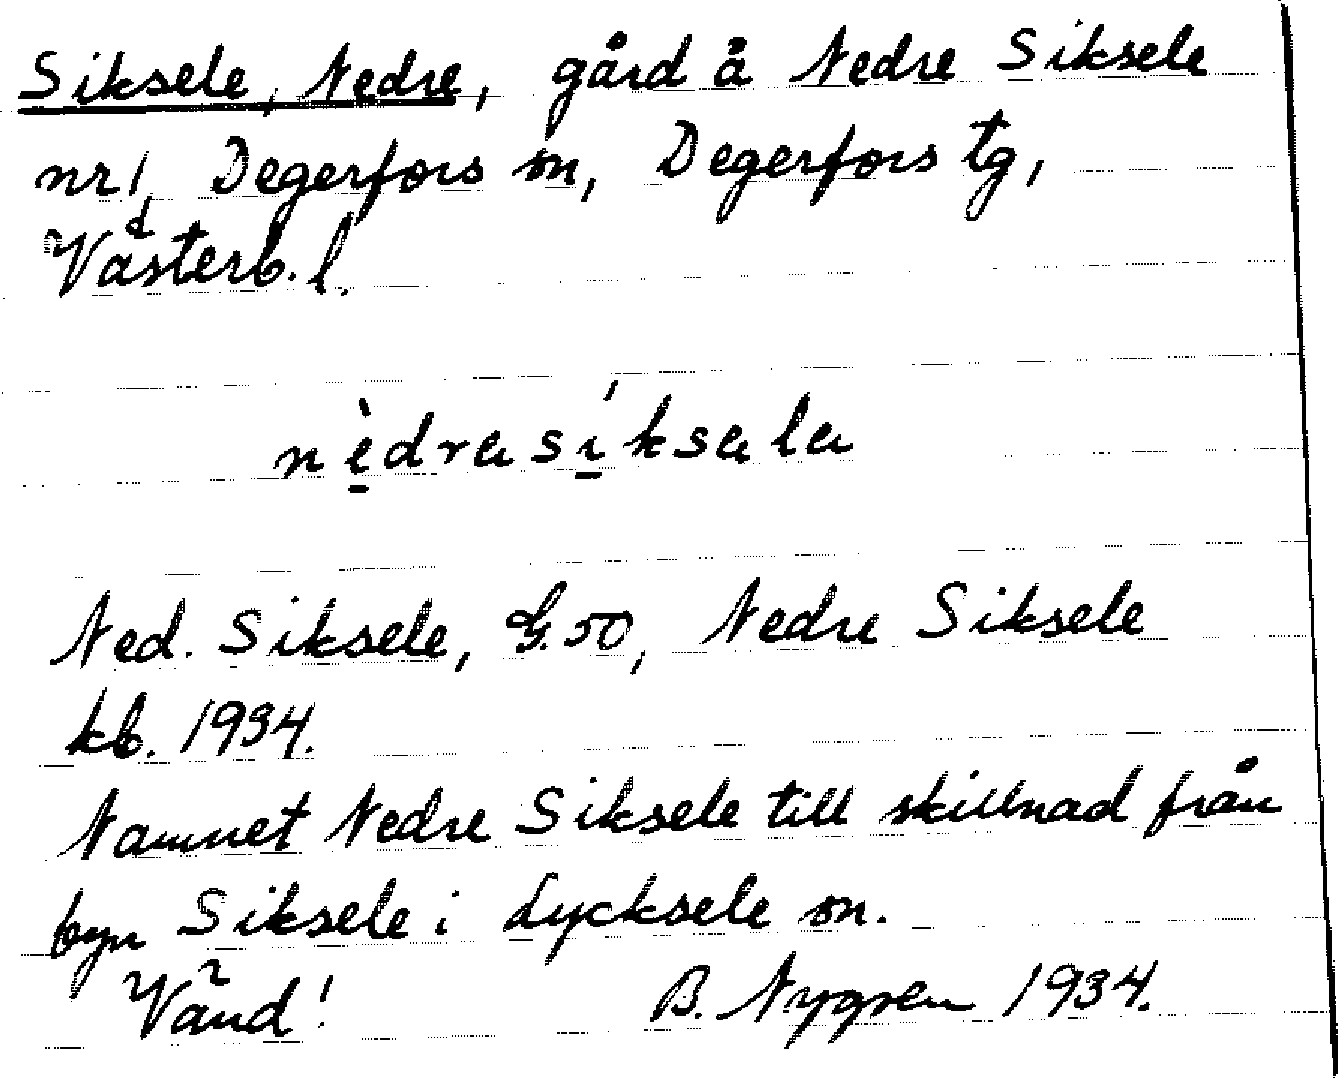 Siksele, Nedre, gård å Nedre Siksele
nr 1, Degerfors sn, Degerfors tg,
Västerb. l.
nèdrasíksala
Ned. Siksele, G. 50, Nedre Siksele
kb. 1934.
Namnet Nedre Siksele till skillnad från
byn Siksele i Lycksele sn.
Vänd! B. Nygren 1934.